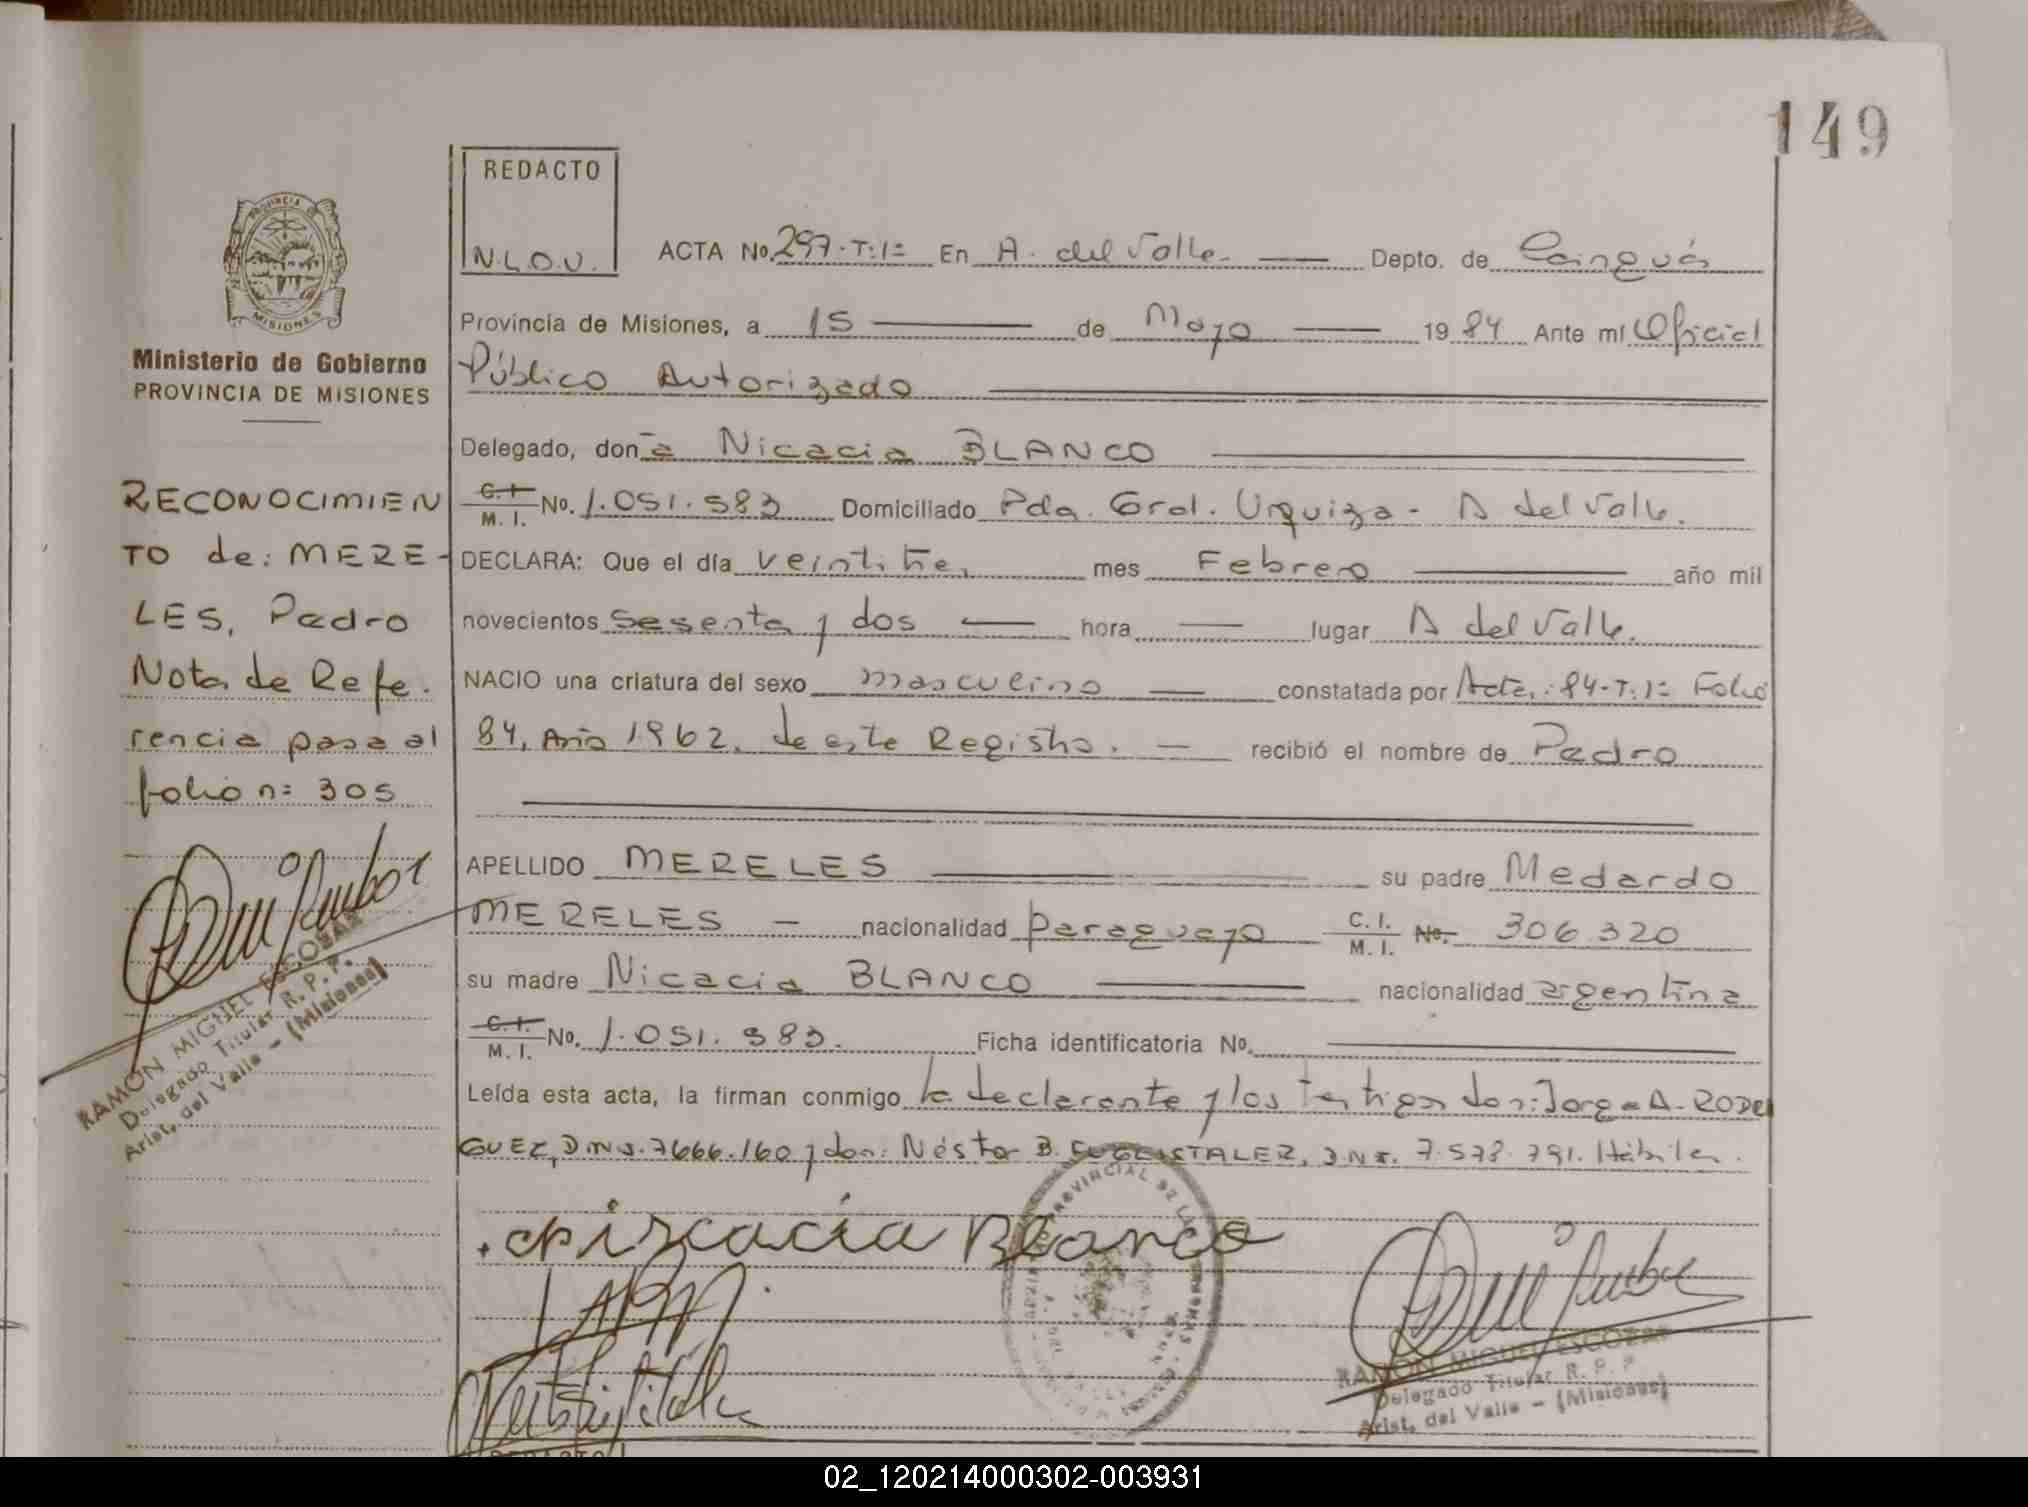 149
REDACTO
N.L.O.U.
ACTA No. 297.T:1= En A. del Valle. Depto. de Cainguás
Provincia de Misiones, a 15 de Mayo 1984 Ante mí Oficial
Público Autorizado
Delegado, doña Nicacia BLANCO
C.I. M.I. No. 1.051.583 Domiciliado Pda. Gral. Urquiza - A del Valle.
DECLARA: Que el día veintitres mes Febrero año mil
novecientos sesenta y dos hora lugar A del Valle.
NACIO una criatura del sexo masculino constatada por Acta.: 84-T:1= Folio
84, Año 1962, de este Registro. recibió el nombre de Pedro
APELLIDO MERELES su padre Medardo
MERELES nacionalidad paraguayo C.I. M.I. No. 306.320
su madre Nicacia BLANCO nacionalidad argentina
C.I. M.I. No. 1.051.583. Ficha identificatoria No.
Leída esta acta, la firman conmigo la declarante y los testigos don: Jorge A. RODRI
GUEZ, D.N.I. 7666.160 y don: Néstor B. D.N.I. 7.573.791. Hábiles.
Blanco
RAMON MIGUEL ESCOBAR
Delegado Titular R. P. P.
Arist. del Valle - (Misiones)
PROVINCIA DE
MISIONES
Ministerio de Gobierno
PROVINCIA DE MISIONES
RECONOCIMIEN
TO de: MERE-
LES, Pedro
Nota de Refe.
rencia pasa al
folio n= 305
RAMON MIGUEL ESCOBAR
Delegado Titular R. P. P.
Arist. del Valle - (Misiones)
PROVINCIAL DE LAS
REDACTO
02_120214000302-003931